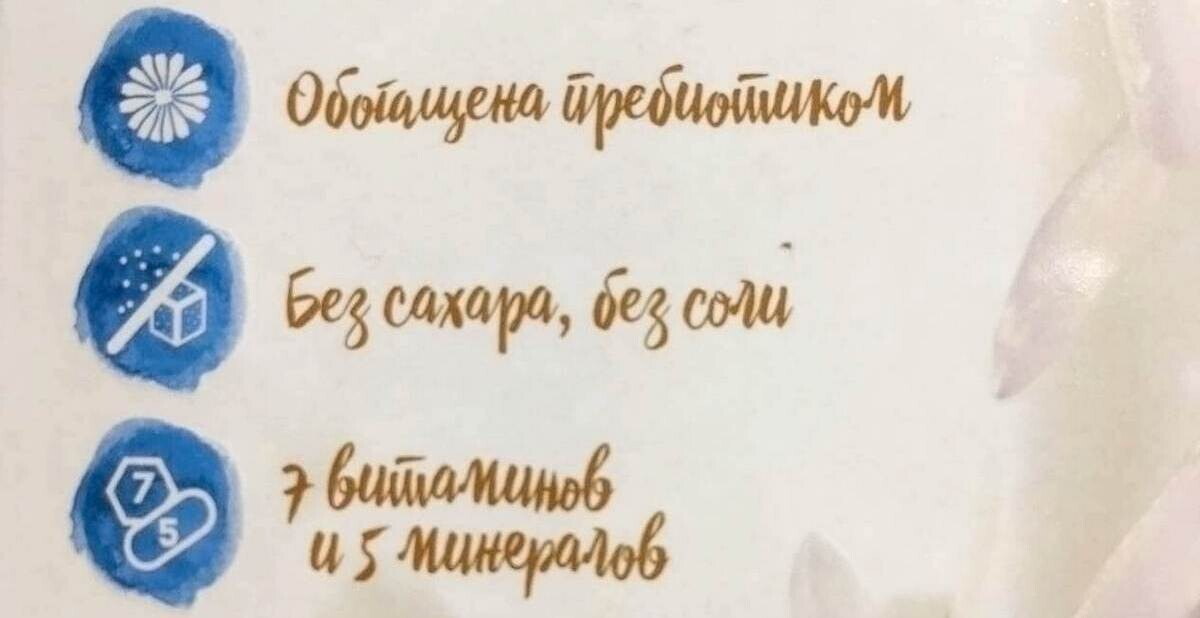 Обогащена пребиотиком
Без сахара, без соли
7 витаминов
и 5 минералов
7
5